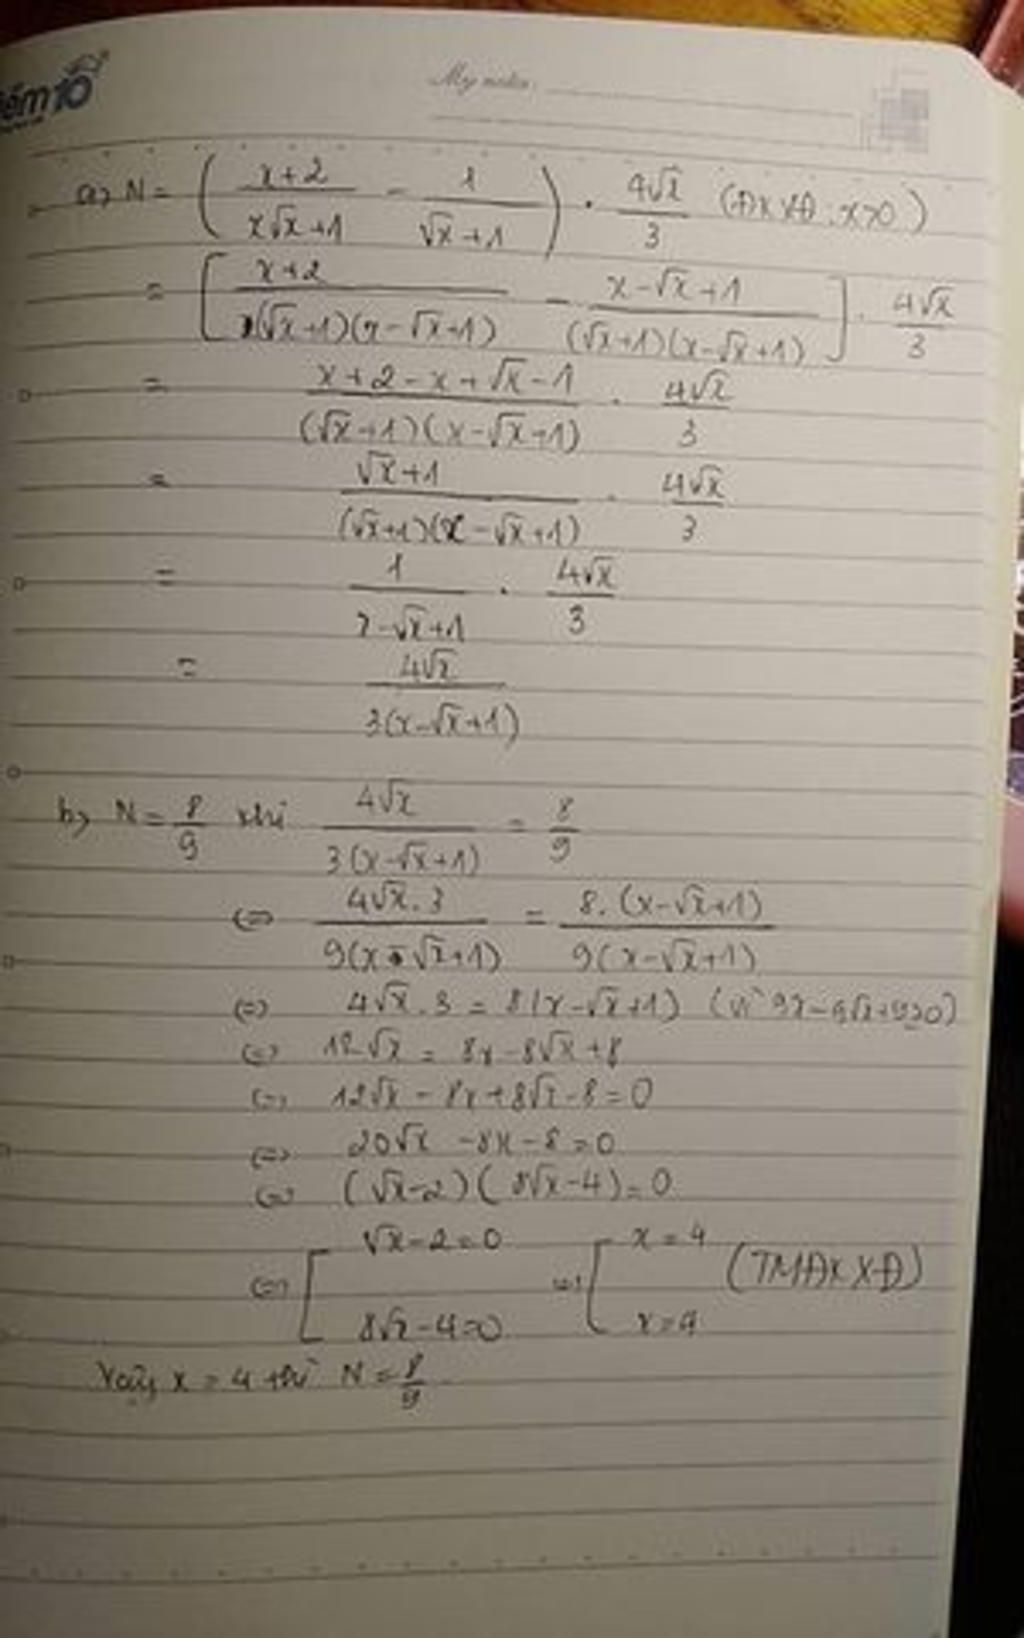 ểm10
My notes:
a) N = ( (x+2)/(x√x+1) - 1/(√x+1) ) . 4√x/3 (ĐKXĐ: x>0)
= [ (x+2)/((√x+1)(x-√x+1)) - (x-√x+1)/((√x+1)(x-√x+1)) ] . 4√x/3
= (x+2-x+√x-1)/((√x+1)(x-√x+1)) . 4√x/3
= (√x+1)/((√x+1)(x-√x+1)) . 4√x/3
= 1/(x-√x+1) . 4√x/3
= 4√x/(3(x-√x+1))
b) N = 8/9 khi 4√x/(3(x-√x+1)) = 8/9
(=) 4√x.3/(9(x-√x+1)) = 8.(x-√x+1)/(9(x-√x+1))
(=) 4√x.3 = 8(x-√x+1)
(=) 12√x = 8x-8√x+8
(=) 12√x - 8x+8√x-8=0
(=) 20√x -8x-8=0
(=) (√x-2)(8√x-4)=0
(=) [ √x-2=0 (=) [ x=4
8√x-4=0 x=4 (TMĐKXĐ)
Vậy x = 4 thì N = 8/9